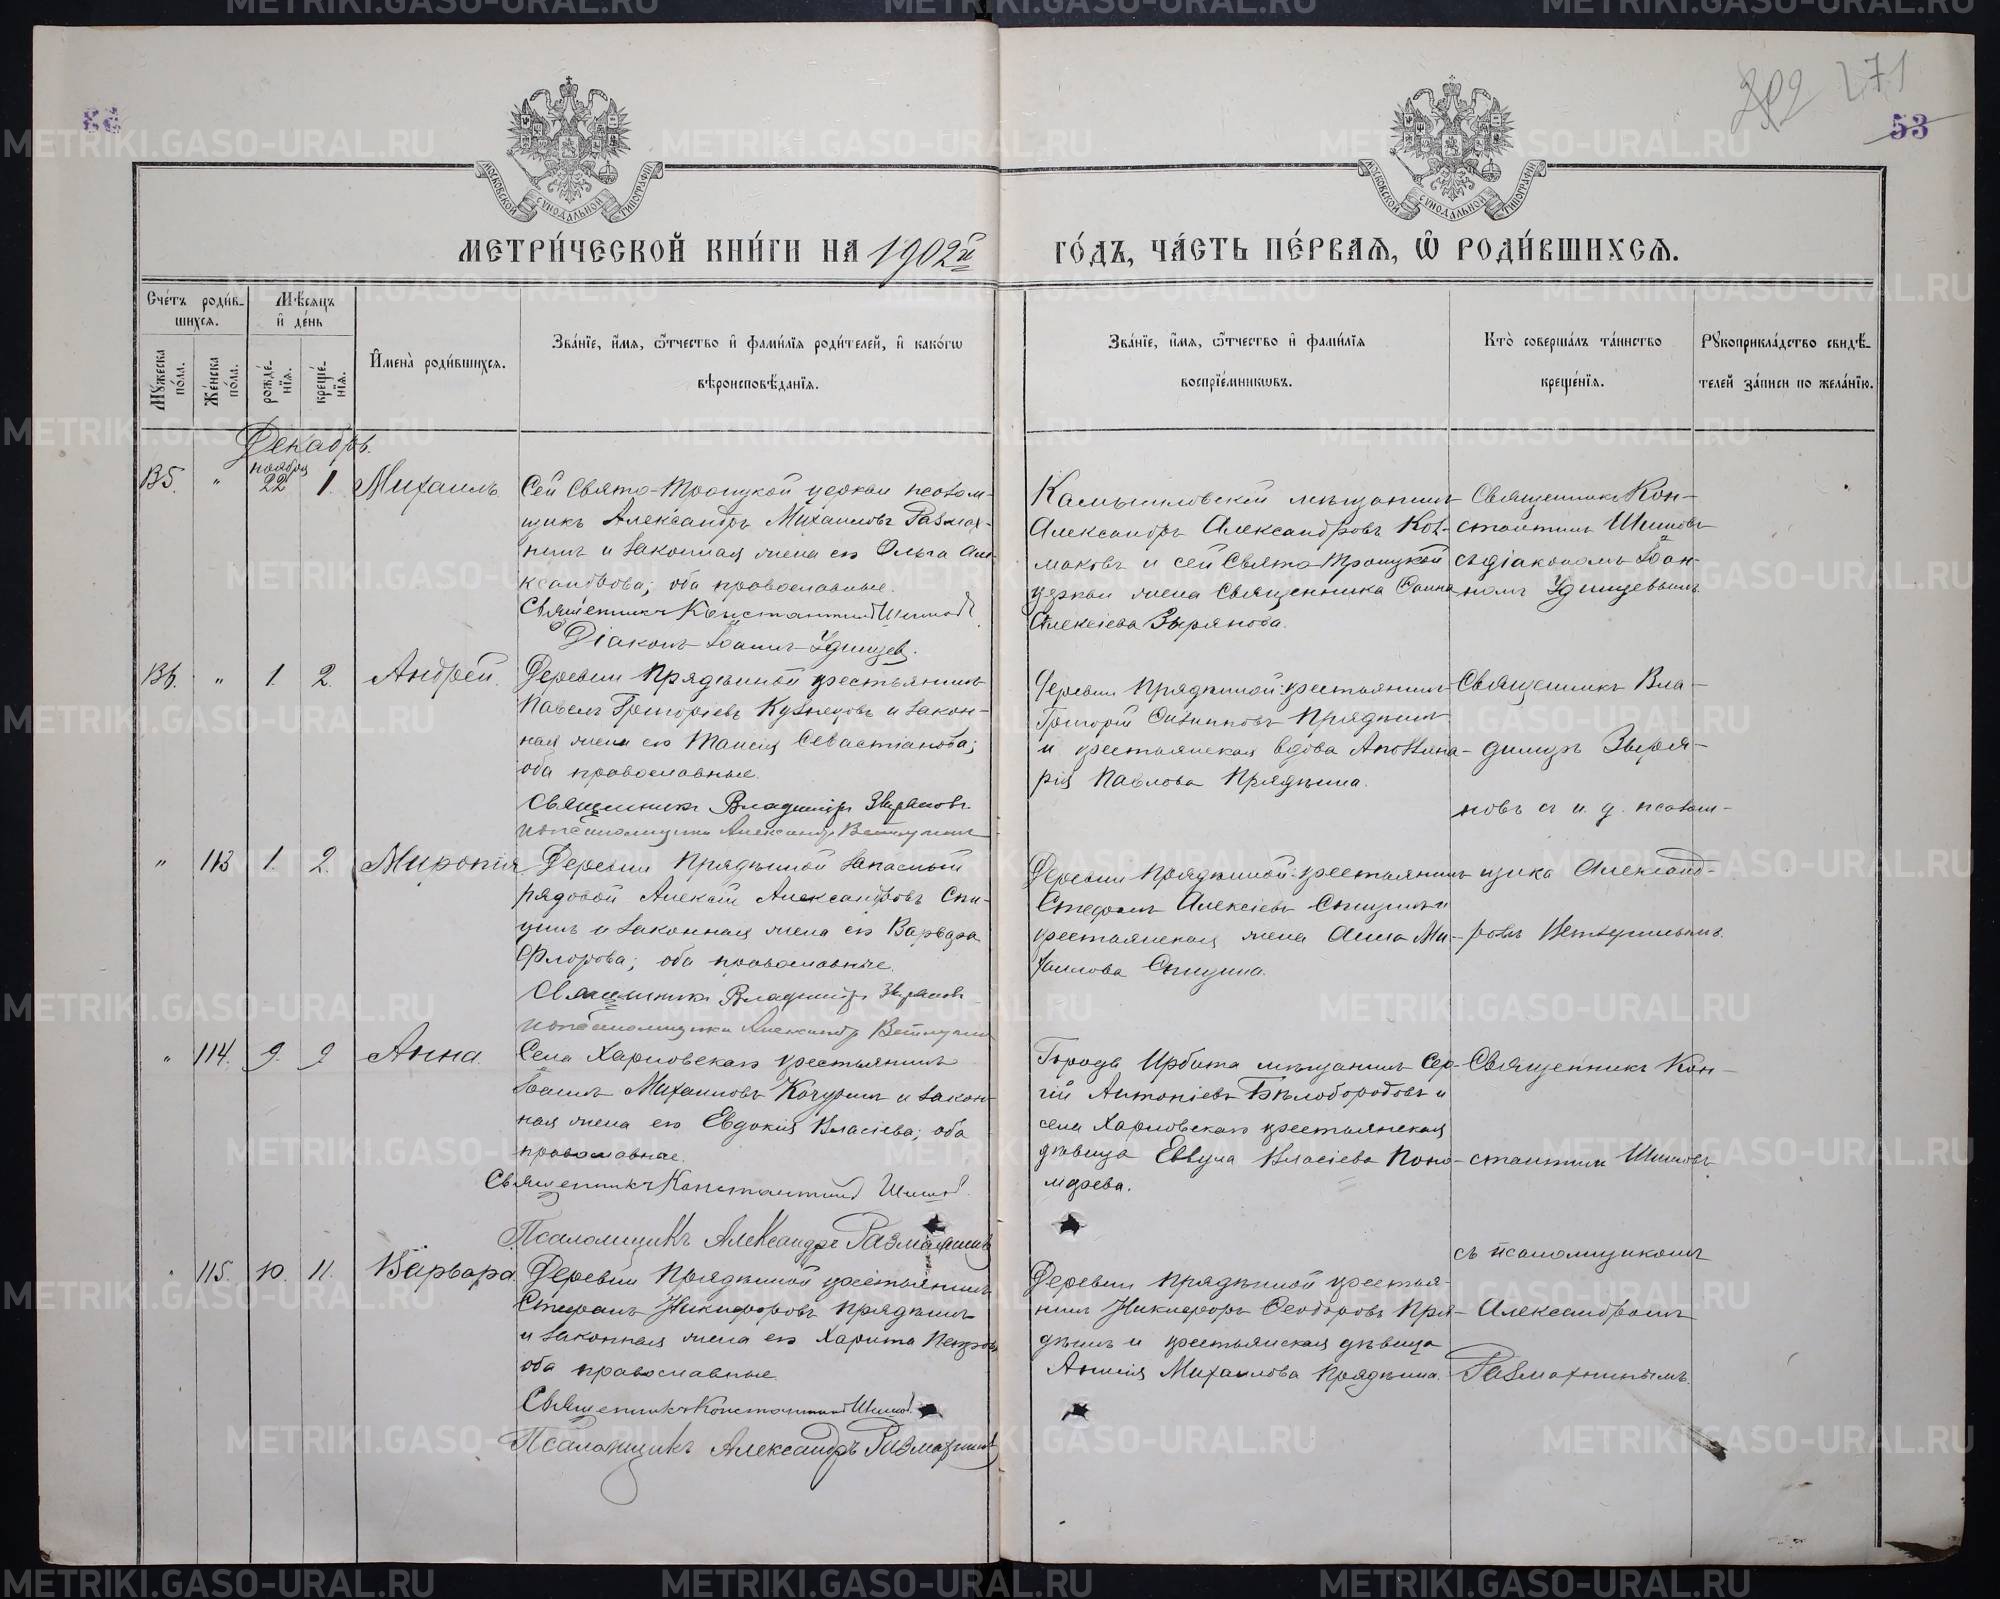 53
202 271
МОСКОВСКОЙ СѴНОДАЛЬНОЙ ТИПОГРАФІИ
МОСКОВСКОЙ СѴНОДАЛЬНОЙ ТИПОГРАФІИ
МЕТРИ́ЧЕСКОЙ КНИ́ГИ НА 1902й ГО́ДЪ, ЧА́СТЬ ПЕ́РВАЯ, Ѡ҆ РОДИ́ВШИХСЯ.
Сче́тъ роди́в-
шихся.
Мѣ́сяцъ
и҆ де́нь
Мꙋ́жеска по́ла.
Же́нска по́ла.
рожде́-
нїя.
креще́-
нїя.
И҆мена̀ роди́вшихся.
Зва́нїе, и҆́мя, ѻ҆́тчество и҆ фами́лїя роди́телей, и҆ како́гѡ
вѣроисповѣ́данїя.
Зва́нїе, и҆́мя, ѻ҆́тчество и҆ фами́лїя
воспрїе́мникѡвъ.
Кто̀ соверша́лъ та́инство
креще́нїя.
Рꙋкоприкла́дство свидѣ́-
телей за́писи по жела́нїю.
Декабрь.
135. " ноября 22 1. Михаилъ
Сей Свято-Троицкой церкви псалом-
щикъ Александръ Михаиловъ Размах-
нинъ и законная жена его Ольга Але-
ксандрова; оба православные.
Священникъ Константинъ Шишовъ
Діаконъ Іоаннъ Удинцев.
Камышловскій мѣщанинъ
Александръ Александровъ Кол-
маковъ и сей Свято-Троицкой
церкви жена священника Соина
Алексіева Зырянова.
Священникъ Кон-
стантинъ Шишовъ
съ діакономъ Іоан-
номъ Удинцевымъ.
136. " 1. 2. Андрей.
Деревни Прядѣиной крестьянинъ
Павелъ Григоріевъ Кузнецовъ и закон-
ная жена его Таисія Севастіанова;
оба православные.
Священникъ Владиміръ Зыряновъ
Деревни Прядѣиной: крестьянинъ
Григорій Прядѣинъ
и крестьянская вдова Аполлина-
рія Павлова Прядѣина.
Священникъ Вла-
димиръ Зыря-
новъ съ и. д. псалом-
щика Александ-
" 113 1. 2. Миропія
Деревни Прядѣиной запасный
рядовой Алексій Александровъ Спи-
цинъ и законная жена его Варвара
Флорова; оба православные.
Священникъ Владиміръ Зыряновъ
Деревни Прядѣиной: крестьянинъ
Стефанъ Алексіевъ Спицинъ и
крестьянская жена Анна Ми-
хаилова Спицина.
" 114. 9. 9 Анна.
Села Харловскаго крестьянинъ
Іоаннъ Михаиловъ Кочуринъ и закон-
ная жена его Евдокія Власіева; оба
православные.
Священникъ Константинъ Шишов.
Псаломщикъ Александръ Размахнинъ
Города Ирбита мѣщанинъ Сер-
гій Антоніевъ Бѣлобородовъ и
села Харловскаго крестьянская
дѣвица Еввула Власіева Поно-
марева.
Священникъ Кон-
стантинъ Шишовъ
съ псаломщикомъ
Александромъ
Размахнинымъ.
" 115. 10. 11. Варвара.
Деревни Прядѣиной крестьянинъ
Стефанъ Никифоровъ Прядѣинъ
и законная жена его Харита Петрова
оба православные.
Священникъ Константинъ Шишов.
Псаломщикъ Александръ Размахнинъ
Деревни Прядѣиной крестья-
нинъ Никифоръ Ѳеодоровъ Пря-
дѣинъ и крестьянская дѣвица
Анисія Михаилова Прядѣина.
METRIKI.GASO-URAL.RU